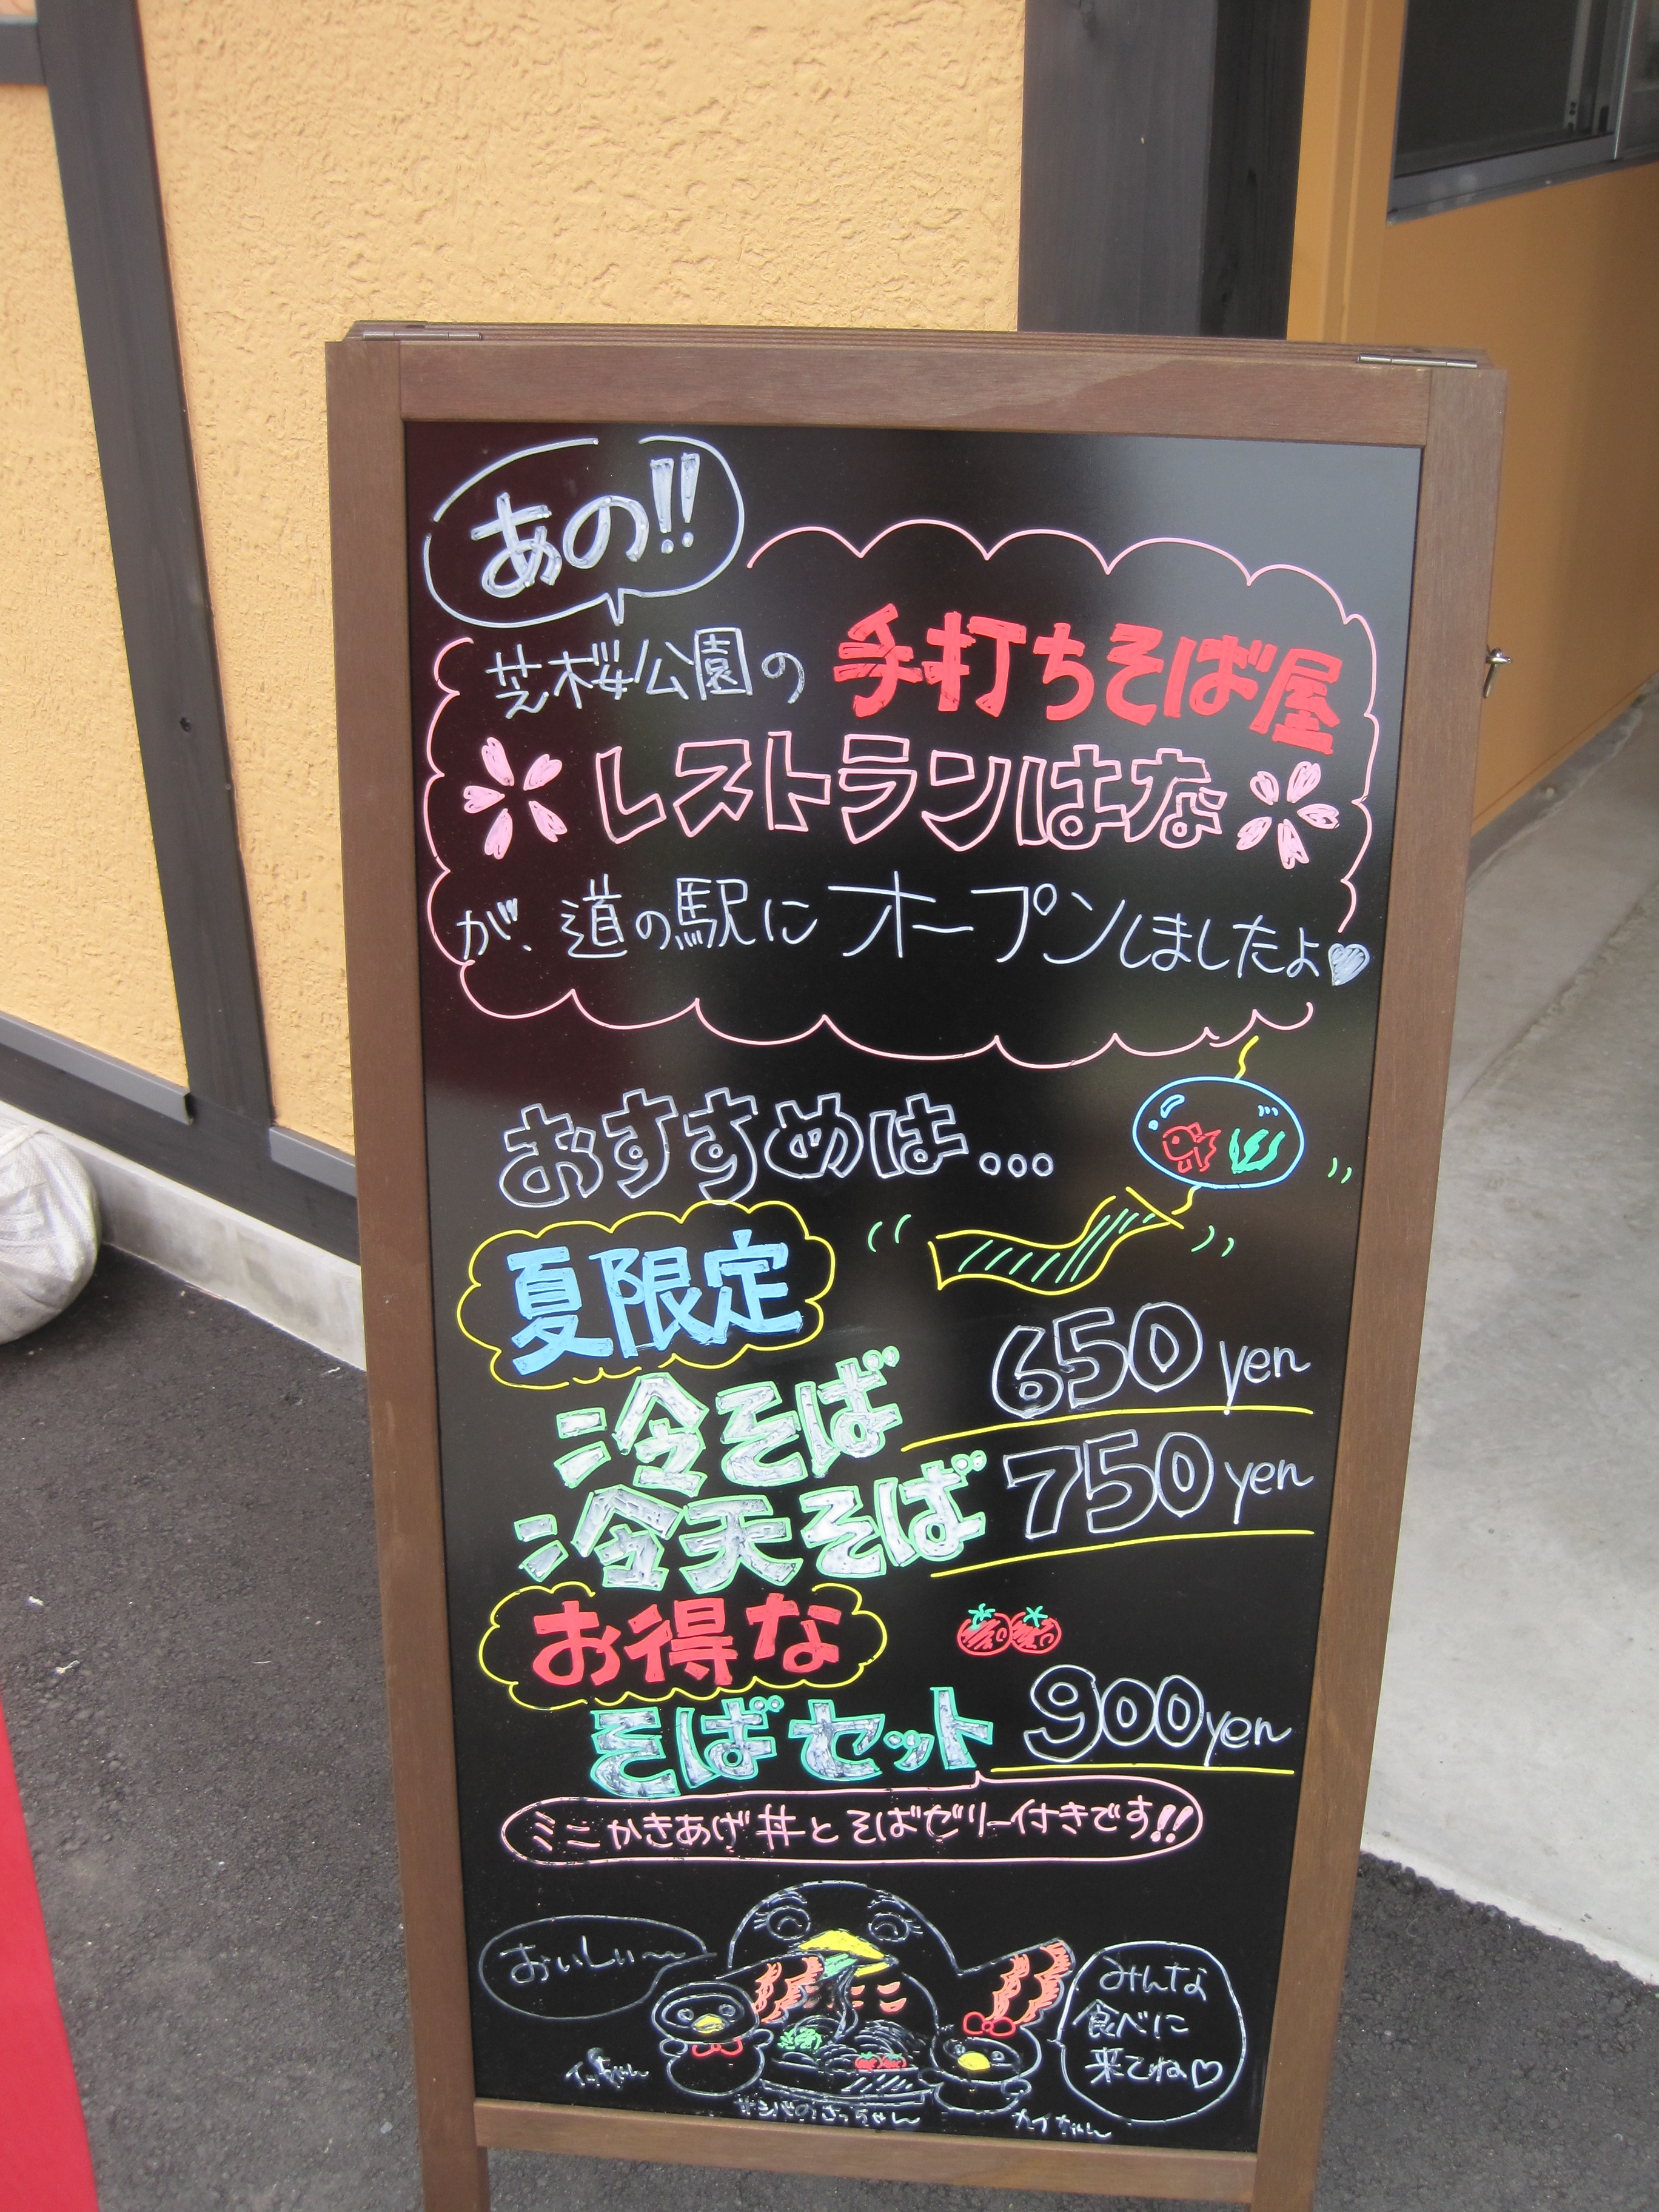 あの!!
芝桜公園の手打ちそば屋
レストランはな
が、道の駅にオープンしましたよ♥
おすすめは...
夏限定
冷そば 650yen
冷天そば 750yen
お得な
そばセット 900yen
ミニかきあげ丼とそばゼリー付きです!!
おいしい〜
みんな
食べに
来てね♡
サシバのさっちゃん
カイちゃん